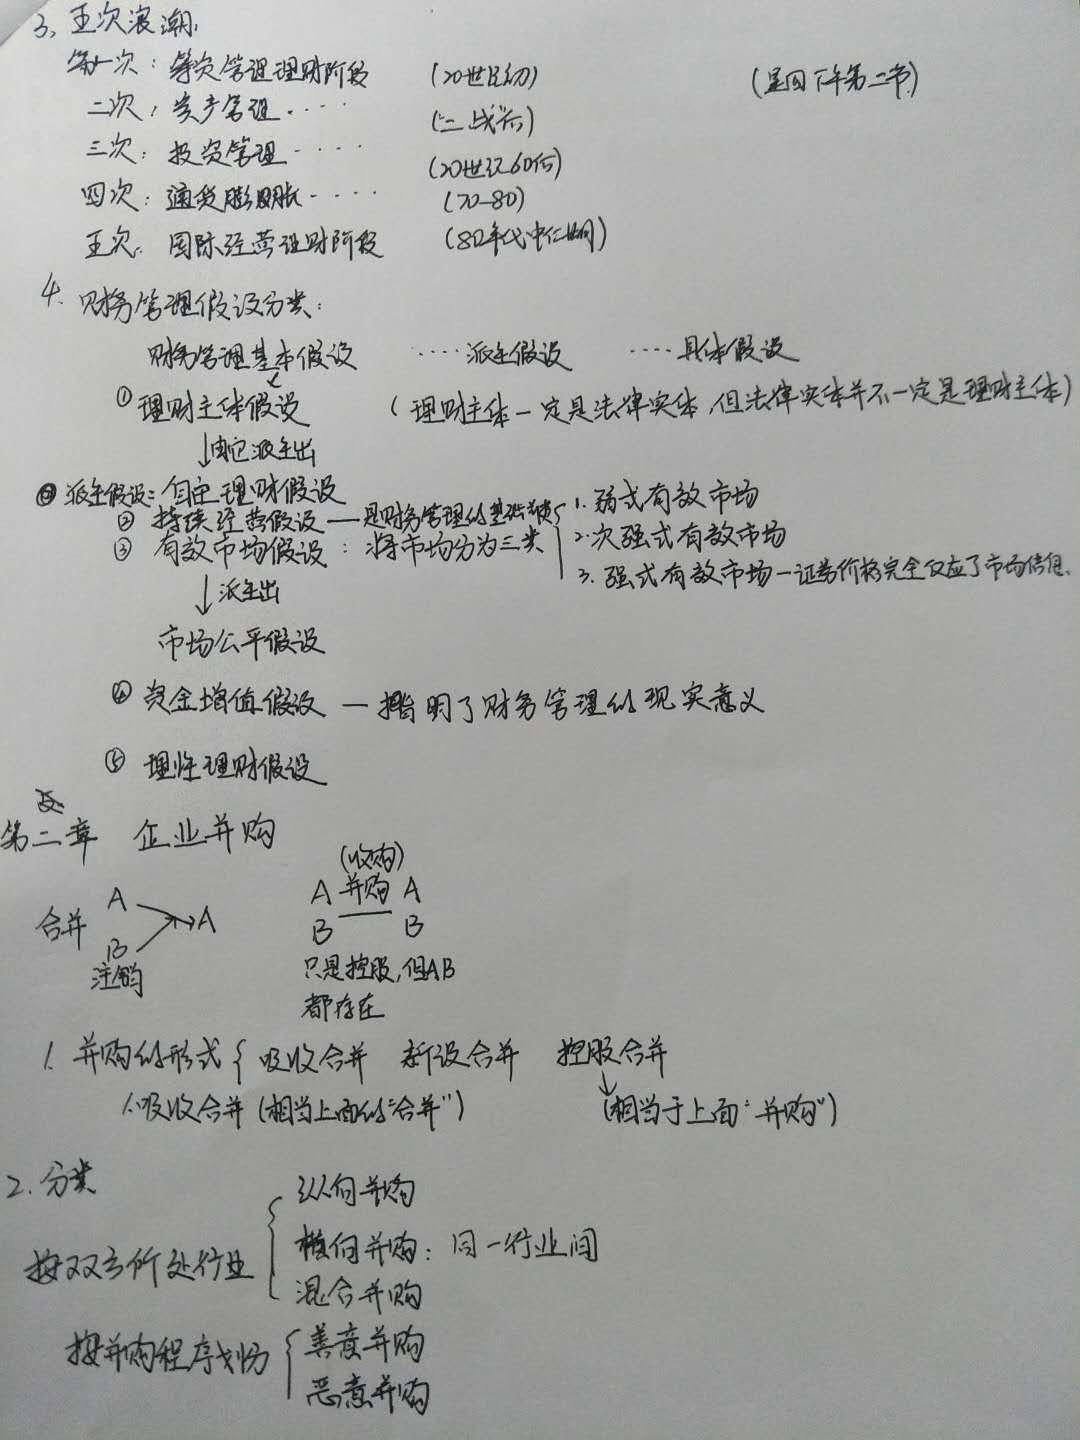 3、五次浪潮:
第一次：筹资管理理财阶段 (20世纪初) (星四下午第二节)
二次：资产管理 ···· (二战后)
三次：投资管理 ···· (20世纪60后)
四次：通货膨胀 ···· (70-80)
五次: 国际经营理财阶段 (80年代中后期)
4. 财务管理假设分类：
财务管理基本假设 ····派生假设 ····具体假设
①理财主体假设 (理财主体一定是法律实体,但法律实体并不一定是理财主体)
↓由它派生出
派生假设：自主理财假设
② 持续经营假设——是财务管理的基础前提
③ 有效市场假设：将市场分为三类 { 1. 弱式有效市场
2.次强式有效市场
3. 强式有效市场—证券价格完全反应了市场信息.
↓派生出
市场公平假设
④ 资金增值假设 — 指明了财务管理的现实意义
⑤ 理性理财假设
第二章 企业并购
合并 A B → A
注销
(收购)
A 并购 A
B —— B
只是控股,但AB
都存在
1. 并购的形式 { 吸收合并 新设合并 控股合并
1.吸收合并 (相当上面的"合并") (相当于上面"并购")
2. 分类
按双方所处行业 { 纵向并购
横向并购：同一行业间
混合并购
按并购程序划分 { 善意并购
恶意并购